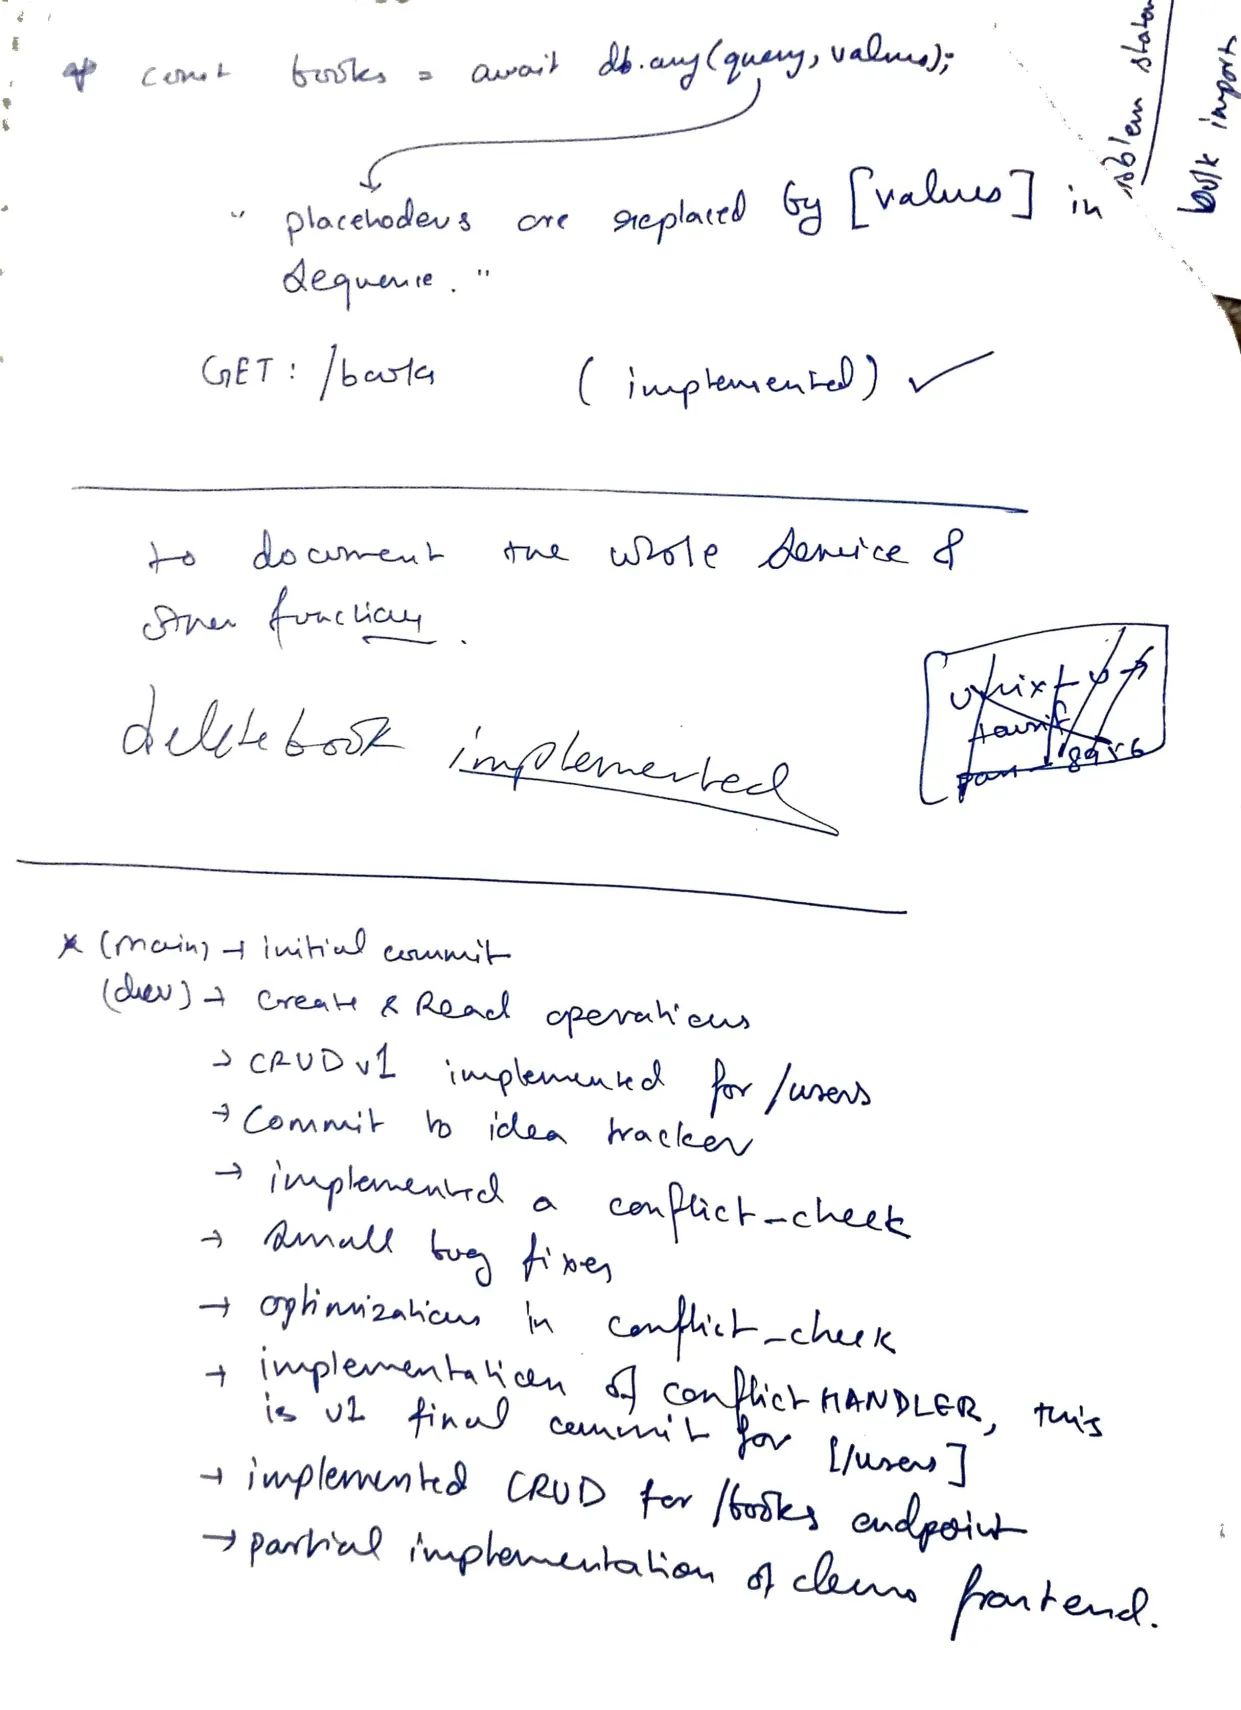 * const books = await db.any(query, values);
" placehoders are replaced by [values] in
sequence. "
GET: /books (implemented) ✓
to document the whole service &
other functions.
deletebook implemented
* (main) → initial commit
(dev) → Create & Read operations
→ CRUD v1 implemented for /users
→ Commit to idea tracker
→ implemented a conflict_check
→ small bug fixes
→ optimizations in conflict_check
→ implementation of conflictHANDLER, this
is v1 final commit for [/users]
→ implemented CRUD for /books endpoint
→ partial implementation of demo frontend.
bulk import